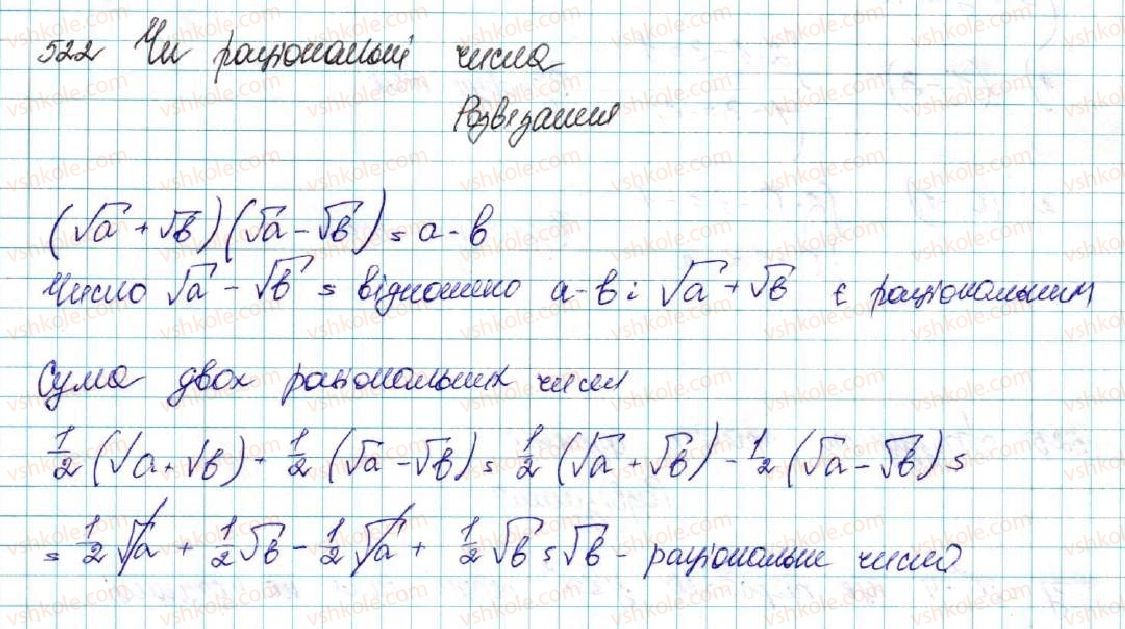 522 Чи раціональні числа
Розв'язання
(√a + √b)(√a - √b) = a - b
Число √a - √b = відношено a-b і √a + √b є раціональним
Сума двох раціональних чисел
1/2 (√a + √b) - 1/2 (√a - √b) = 1/2 (√a + √b) - 1/2 (√a - √b) =
= 1/2 √a + 1/2 √b - 1/2 √a + 1/2 √b = √b - раціональне число